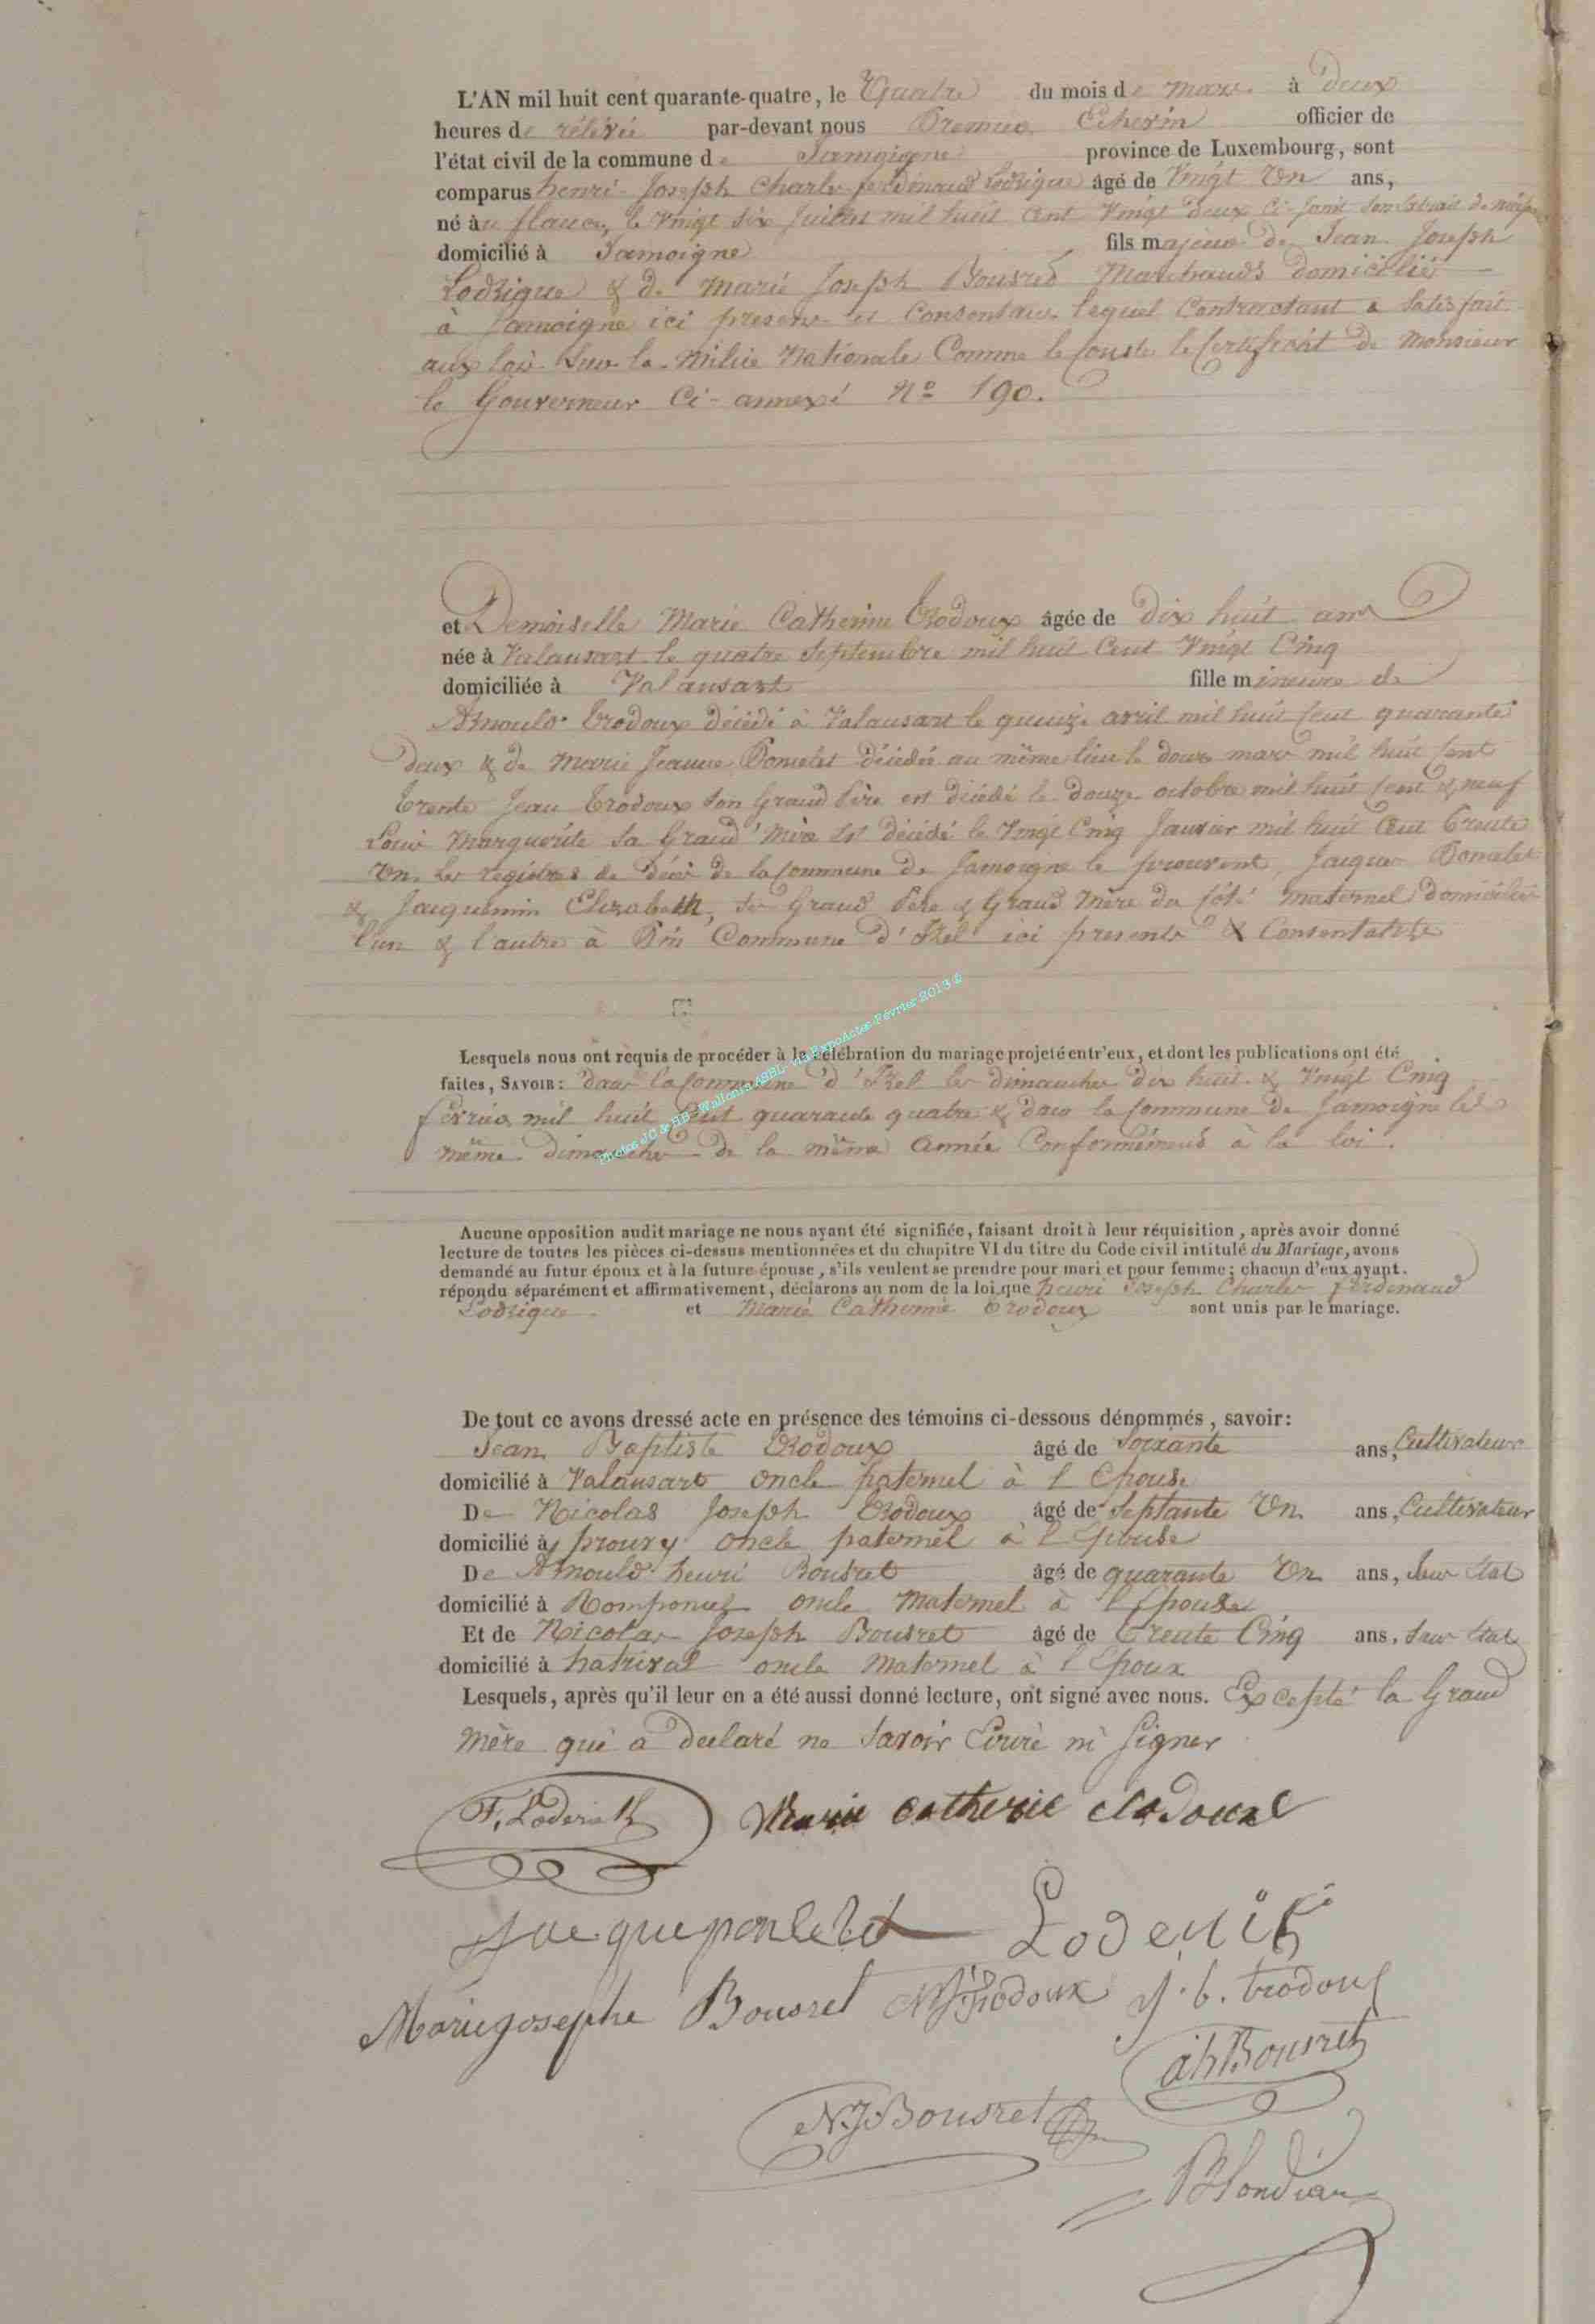 L'AN mil huit cent quarante-quatre, le Quatre du mois de mars à deux
heures de rélévée par-devant nous Premier Echevin officier de
l'état civil de la commune de Jamoigne province de Luxembourg, sont
comparus henri Joseph Charles ferdinand Lodrigue âgé de Vingt Un ans,
né à le Vingt six Juillet mil huit Cent Vingt deux Ci-joint son Extrait de
domicilié à Jamoigne fils majeur de Jean Joseph
Lodrigue & de Marie Joseph Bousret Marchands domicilié
à Jamoigne ici présens et Consentans lequel Contractant a Satisfait
aux lois Sur la Milice Nationale Comme le Conste le Certificat de Monsieur
le Gouverneur Ci-annexé N° 190.
et Demoiselle Marie Catherine Trodoux âgée de dix huit ans
née à Valansart le quatre Septembre mil huit Cent Vingt Cinq
domiciliée à Valansart fille mineure de
Arnould Trodoux décédé à Valansart le quinze avril mil huit Cent quarante
deux & de Marie Jeanne Poncelet décédée au même lieu le douze mars mil huit Cent
trente Jean Trodoux son Grand Père est décédé le douze octobre mil huit Cent & neuf
Marguerite sa Grand'Mère est décédé le Vingt Cinq Janvier mil huit Cent trente
Un. les régistres de décès de la Commune de Jamoigne le prouvent, Jaques
& Jaquemin Elizabeth, ses Grand Père & Grand Mère du Côté Maternel domiciliés
l'un & l'autre à Pin Commune d'Izel ici présents & Consentants
Lesquels nous ont requis de procéder à la célébration du mariage projeté entr'eux, et dont les publications ont été
faites, SAVOIR: dans la Commune d'Izel les dimanches dix huit & Vingt Cinq
février mil huit Cent quarante quatre & dans la Commune de Jamoigne les
même dimanches de la même année Conformément à la loi.
Photos JC & HB - Wallonia ASBL via ExpoActes Février 2013 ©
Aucune opposition audit mariage ne nous ayant été signifiée, faisant droit à leur réquisition, après avoir donné
lecture de toutes les pièces ci-dessus mentionnées et du chapitre VI du titre du Code civil intitulé du Mariage, avons
demandé au futur époux et à la future épouse, s'ils veulent se prendre pour mari et pour femme; chacun d'eux ayant
répondu séparément et affirmativement, déclarons au nom de la loi que henri Joseph Charles ferdinand
Lodrigue et Marie Catherine Trodoux sont unis par le mariage.
De tout ce avons dressé acte en présence des témoins ci-dessous dénommés, savoir:
Jean Baptiste Trodoux âgé de Soixante ans, Cultivateur
domicilié à Valansart oncle paternel à l Epouse
De Nicolas Joseph Trodoux âgé de Septante Un ans, Cultivateur
domicilié à prouvy oncle paternel à l Epouse
De Arnould henri Bousret âgé de quarante Un ans, Sans Etat
domicilié à Romponcel oncle Maternel à l Epouse
Et de Nicolas Joseph Bousret âgé de trente Cinq ans, Sans Etat
domicilié à hatrival oncle Maternel à l Epoux
Lesquels, après qu'il leur en a été aussi donné lecture, ont signé avec nous. Excepté la Grand
Mère qui a declaré ne Savoir Ecrire ni Signer
Marie Catherine
Mariejosephe Bousret NJ Trodoux J. b. trodoux
ah Bousret
NJ Bousret
Blondiau